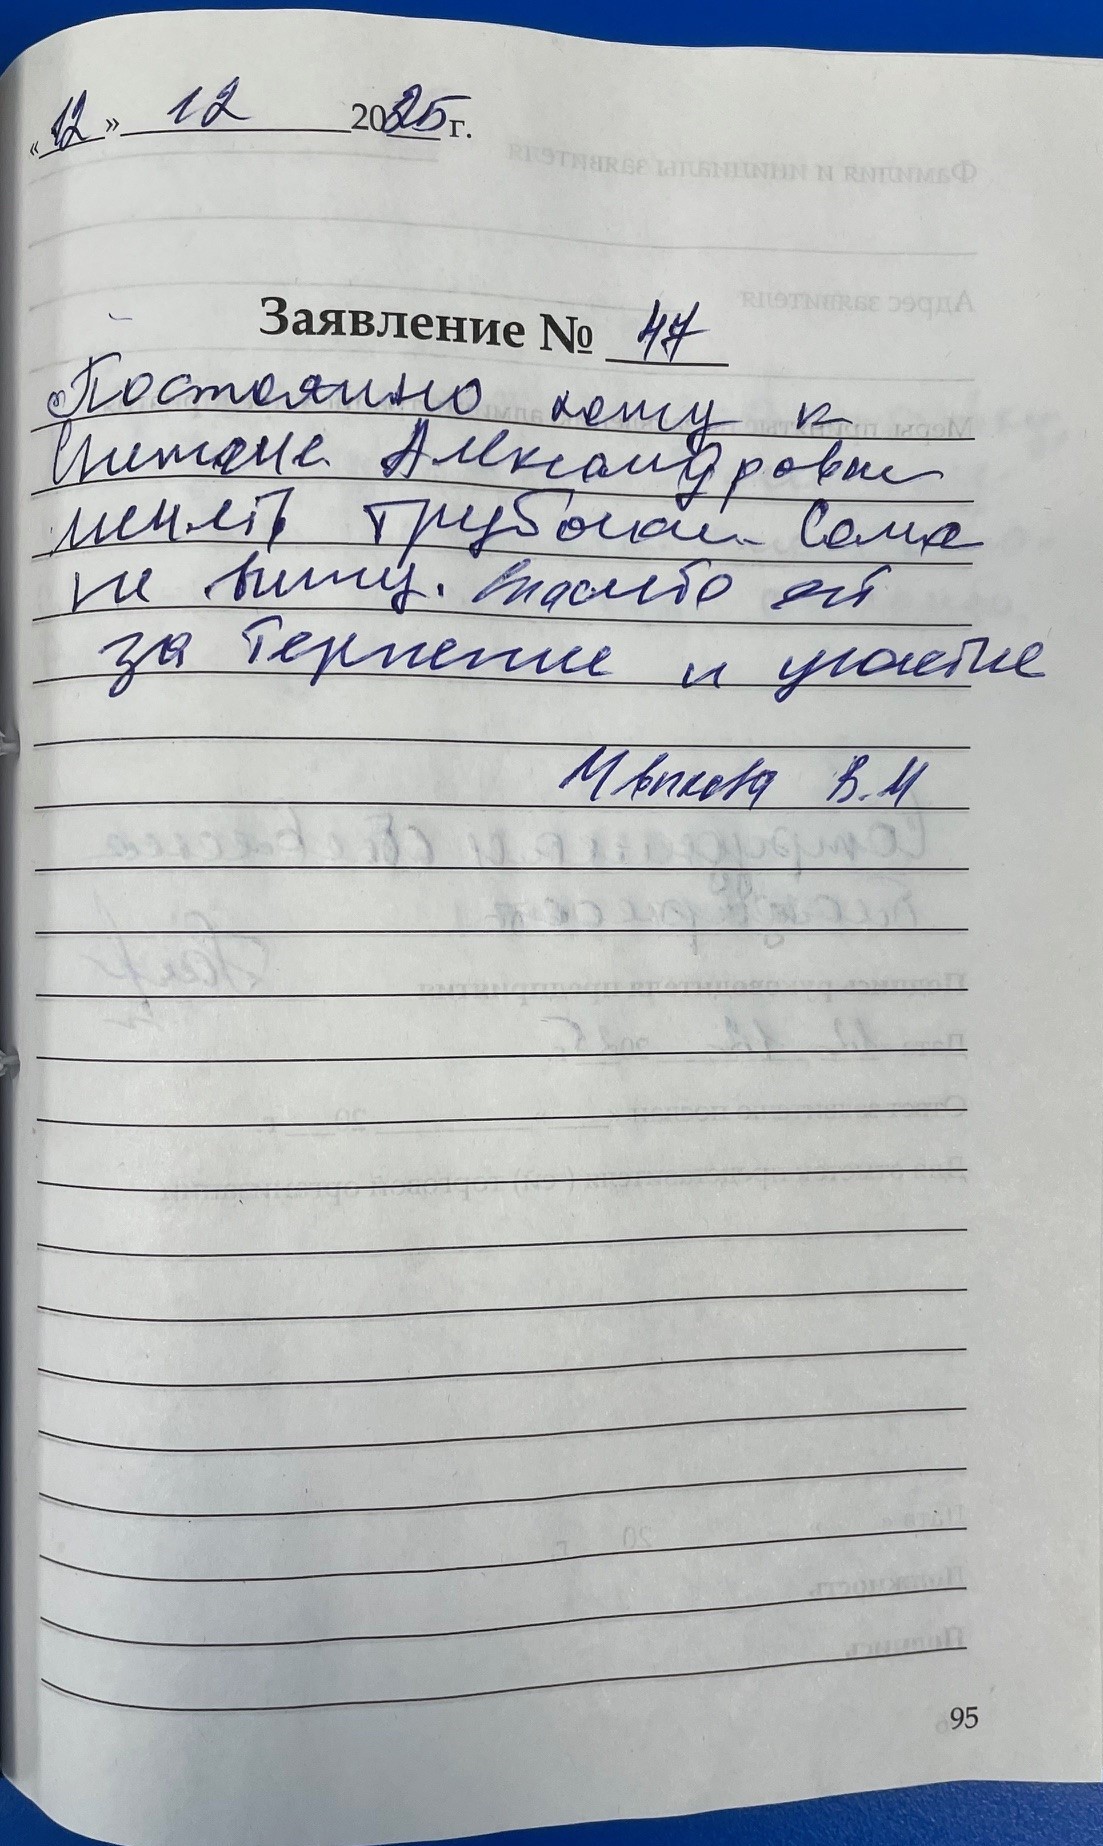 «12» 12 2025 г.
Заявление № 47
Постоянно хожу к
Александровне
менять трубочки. Сама
не вижу. Спасибо ей
за терпение и участие
В.М
95